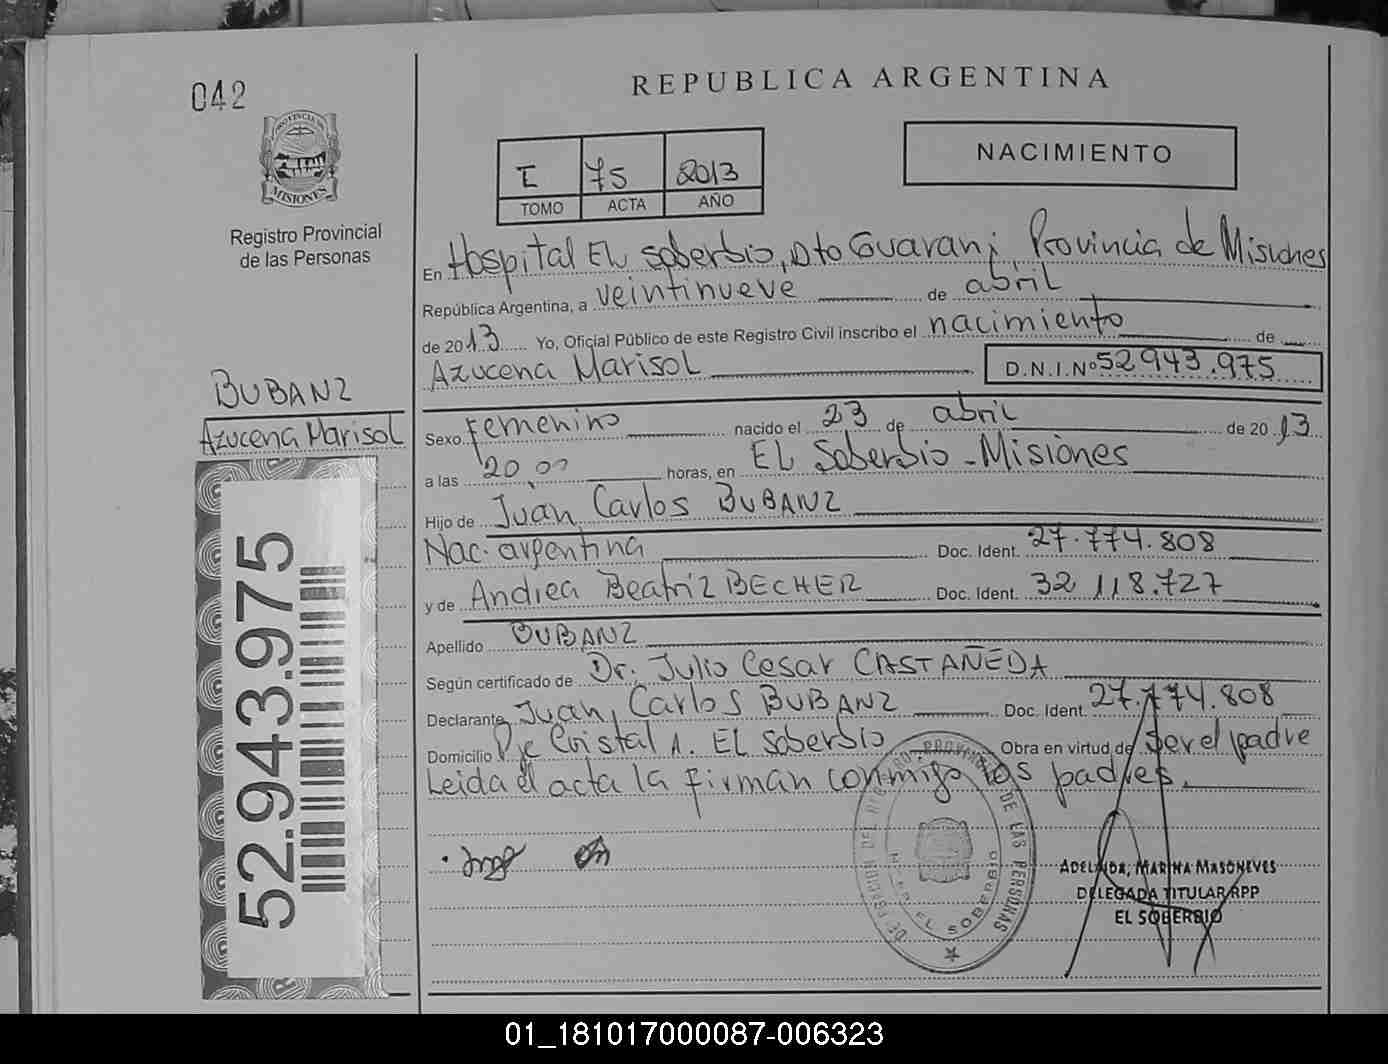 042
REPUBLICA ARGENTINA
PROVINCIA DE
MISIONES
Registro Provincial
de las Personas
I 75 2013
TOMO ACTA AÑO
NACIMIENTO
En Hospital El Soberbio, Dto Guarani, Provincia de Misiones
República Argentina, a veintinueve de abril
de 2013 Yo, Oficial Público de este Registro Civil inscribo el nacimiento de
Azucena Marisol D.N.I.Nº 52943.975
BUBANZ
Azucena Marisol
Sexo femenino nacido el 23 de abril de 2013
a las 20,00 horas, en El Soberbio - Misiones
Hijo de Juan Carlos BUBANZ
Nac. argentina Doc. Ident. 27.774.808
y de Andrea Beatriz BECHER Doc. Ident. 32 118.727
Apellido BUBANZ
Según certificado de Dr. Julio Cesar CASTAÑEDA
Declarante Juan Carlos BUBANZ Doc. Ident. 27.774.808
Domicilio Pje Cristal A. El Soberbio Obra en virtud de ser el padre
Leida el acta la firman conmigo los padres.
52.943.975
DE LAS PERSONAS
EL SOBERBIO
ADELINDA, MARINA MASONEVES
DELEGADA TITULAR RPP
EL SOBERBIO
01_181017000087-006323